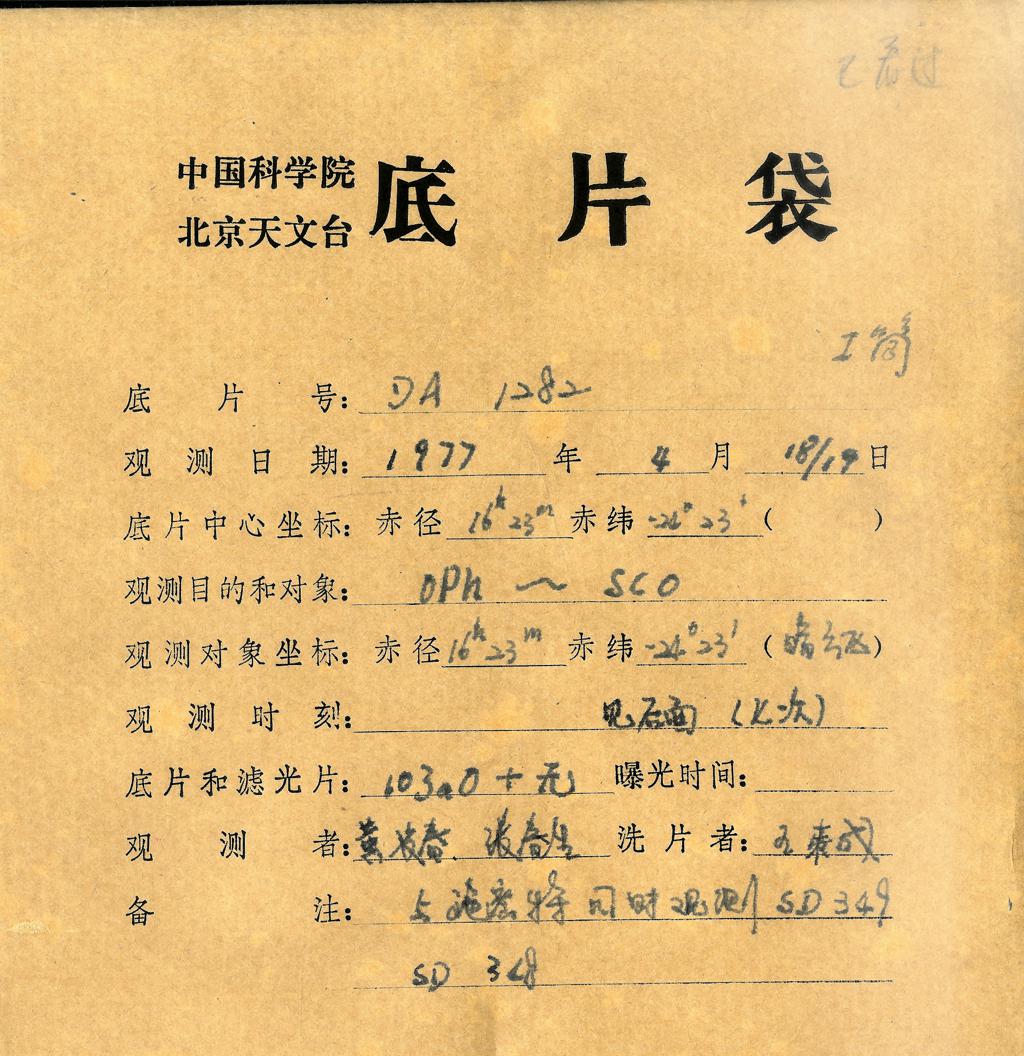 已看过
中国科学院
北京天文台
底片袋
I筒
底片号: DA 1282
观测日期: 1977 年 4 月 18/19 日
底片中心坐标: 赤径 16h23m 赤纬 -24°23' ( )
观测目的和对象: OPh ~ SCO
观测对象坐标: 赤径 16h23m 赤纬 -24°23' (暗云区)
观测时刻: 见后面 ( 次)
底片和滤光片: 103aO + 无 曝光时间:
观测者: 黄 春. 张春生 洗片者: 成
备注: 与施密特同时观测 SD 349
SD 348